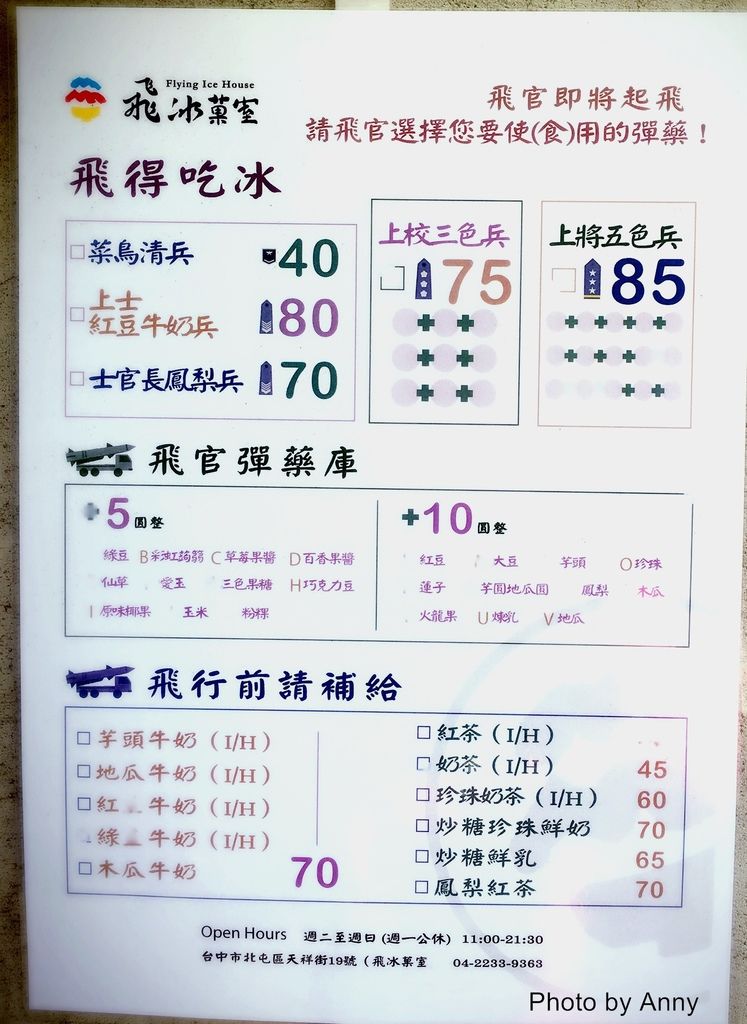 Flying Ice House
飛冰菓室
飛官即將起飛
請飛官選擇您要使(食)用的彈藥！
飛得吃冰
□菜鳥清兵 40
□上士
紅豆牛奶兵 80
□士官長鳳梨兵 70
上校三色兵
□ 75
上將五色兵
□ 85
飛官彈藥庫
+5圓整
綠豆 B彩虹蒟蒻 C草莓果醬 D百香果醬
仙草 愛玉 三色果糖 H巧克力豆
I原味椰果 玉米 粉粿
+10圓整
紅豆 大豆 芋頭 O珍珠
蓮子 芋圓地瓜圓 鳳梨 木瓜
火龍果 U煉乳 V地瓜
飛行前請補給
□芋頭牛奶（I/H）
□地瓜牛奶（I/H）
□紅 牛奶（I/H）
綠 牛奶（I/H）
□木瓜牛奶 70
□紅茶（I/H）
□奶茶（I/H） 45
□珍珠奶茶（I/H） 60
□炒糖珍珠鮮奶 70
□炒糖鮮乳 65
□鳳梨紅茶 70
Open Hours 週二至週日 (週一公休) 11:00-21:30
台中市北屯區天祥街19號（飛冰菓室 04-2233-9363
Photo by Anny